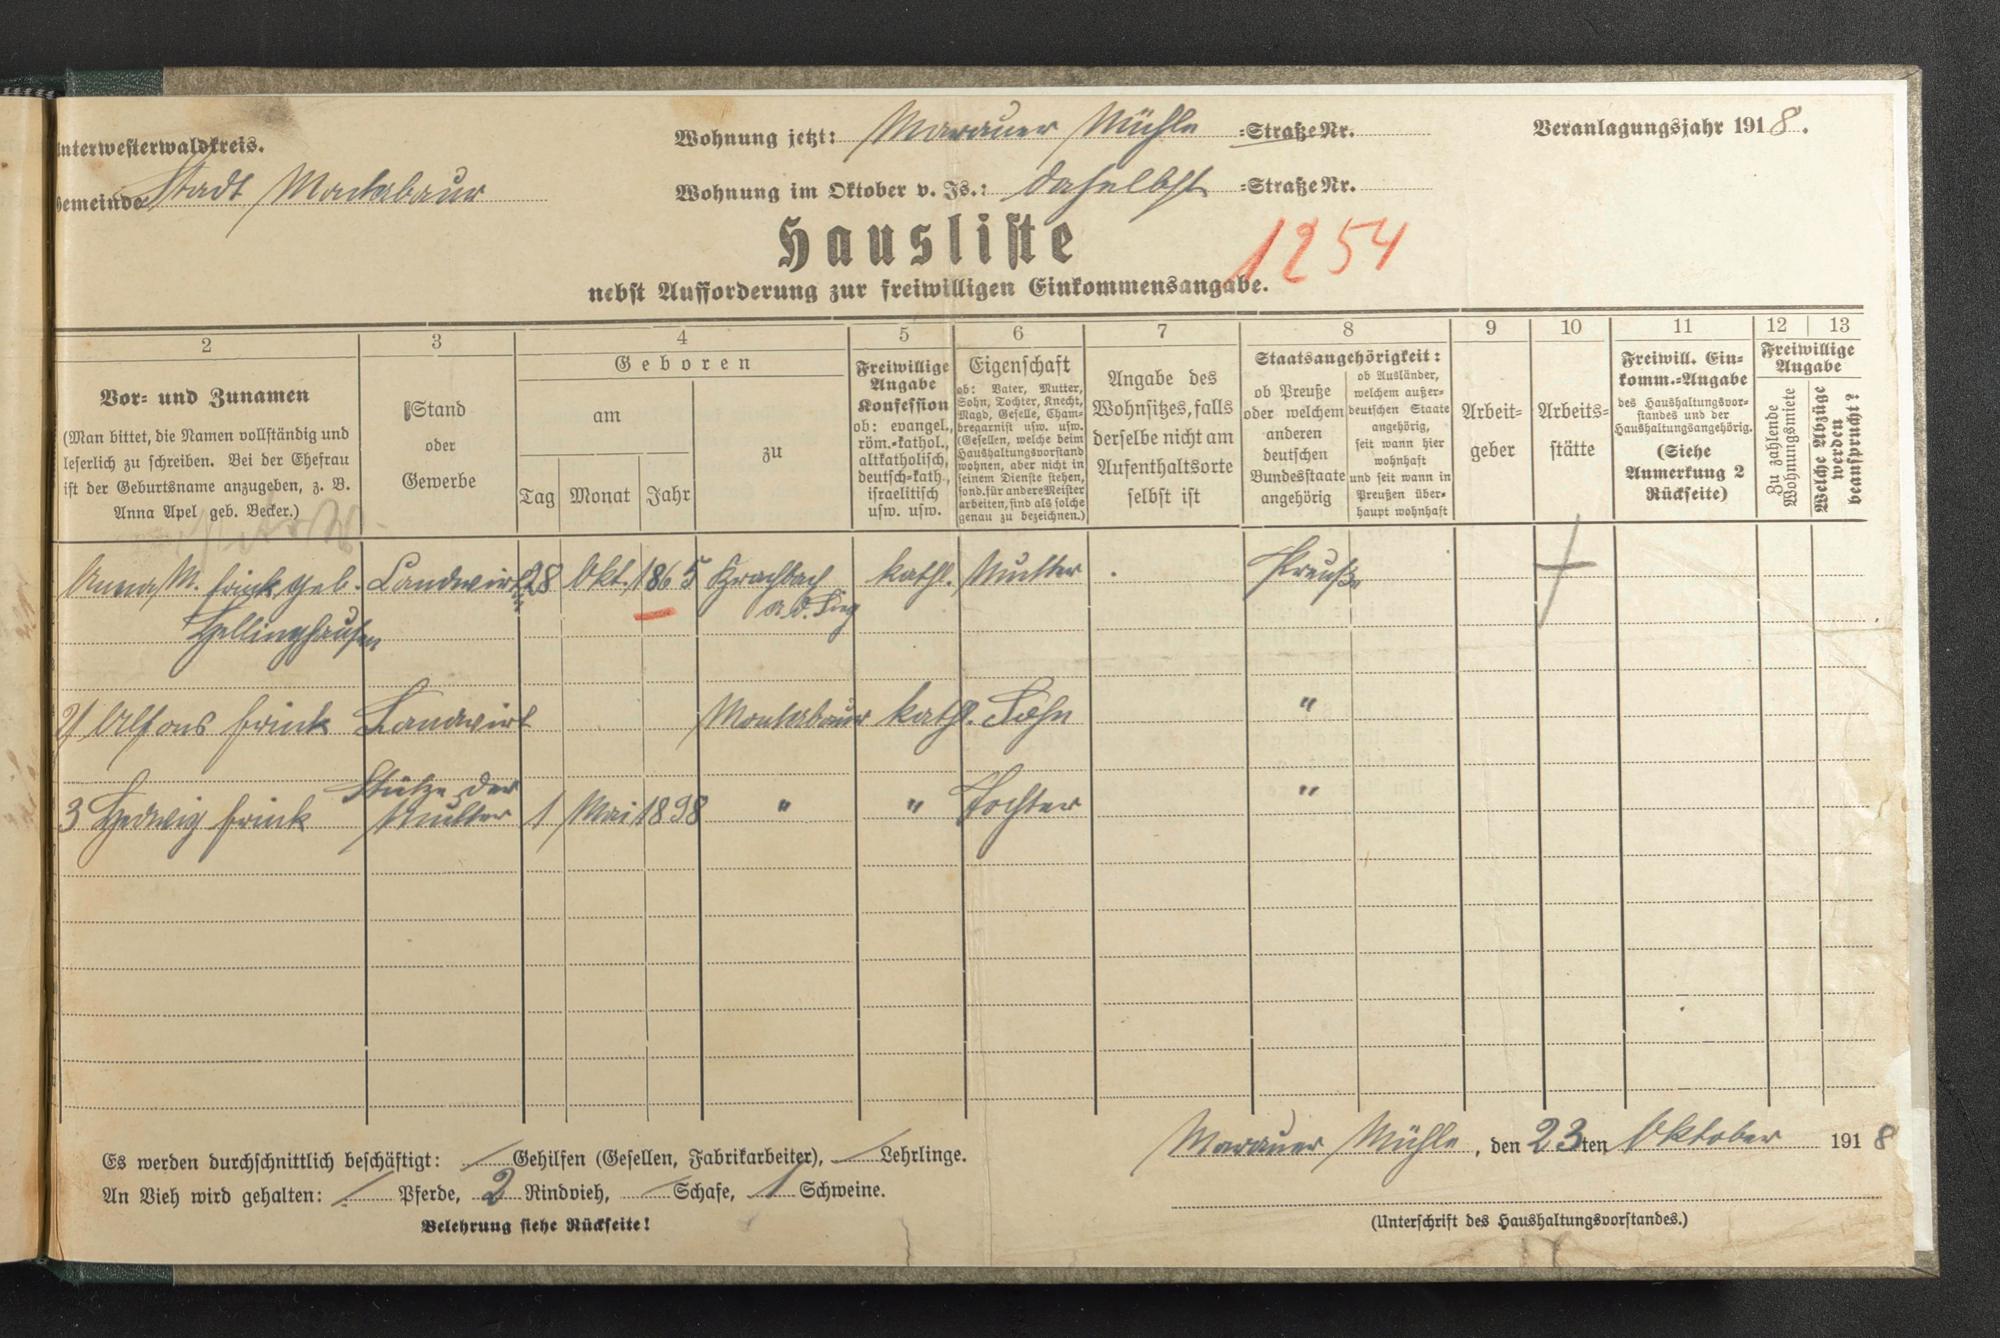 Unterwesterwaldkreis.
Wohnung jetzt: Marauer Mühle =Straße Nr.
Veranlagungsjahr 1918.
Gemeinde Stadt Montabaur
Wohnung im Oktober v. Js.: daselbst =Straße Nr.
Hausliste
1254
nebst Aufforderung zur freiwilligen Einkommensangabe.
2
3
4
5
6
7
8
9
10
11
12
13
Vor- und Zunamen
(Man bittet, die Namen vollständig und
leserlich zu schreiben. Bei der Ehefrau
ist der Geburtsname anzugeben, z. B.
Anna Apel geb. Becker.)
Stand
oder
Gewerbe
Geboren
am
zu
Tag
Monat
Jahr
Freiwillige
Angabe
Konfession
ob: evangel.,
röm.-kathol.,
altkatholisch,
deutsch-kath.,
israelitisch
usw. usw.
Eigenschaft
ob: Vater, Mutter,
Sohn, Tochter, Knecht,
Magd, Geselle, Cham-
bregarnist usw. usw.
(Gesellen, welche beim
Haushaltungsvorstand
wohnen, aber nicht in
seinem Dienste stehen,
sond. für andere Meister
arbeiten, sind als solche
genau zu bezeichnen.)
Angabe des
Wohnsitzes, falls
derselbe nicht am
Aufenthaltsorte
selbst ist
Staatsangehörigkeit:
ob Preuße
oder welchem
anderen
deutschen
Bundesstaate
angehörig
ob Ausländer,
welchem außer-
deutschen Staate
angehörig,
seit wann hier
wohnhaft
und seit wann in
Preußen über-
haupt wohnhaft
Arbeit-
geber
Arbeits-
stätte
Freiwill. Ein-
komm.-Angabe
des Haushaltungsvor-
standes und der
Haushaltungsangehörig.
(Siehe
Anmerkung 2
Rückseite)
Freiwillige
Angabe
Zu zahlende
Wohnungsmiete
Welche Abzüge
werden
beansprucht?
Anna M. Frink geb. Landwirt 28 Okt. 1865 kathl. Mutter Preuße
Hellinghausen a. d. Sieg
2) Alfons Frink Landwirt Montabaur kathl. Sohn "
3 Hedwig Frink Stütze der Mutter 1 Mai 1898 " " Tochter "
Marauer Mühle, den 23ten Oktober 1918
Es werden durchschnittlich beschäftigt: / Gehilfen (Gesellen, Fabrikarbeiter), / Lehrlinge.
An Vieh wird gehalten: / Pferde, 2 Rindvieh, / Schafe, 1 Schweine.
(Unterschrift des Haushaltungsvorstandes.)
Belehrung siehe Rückseite!